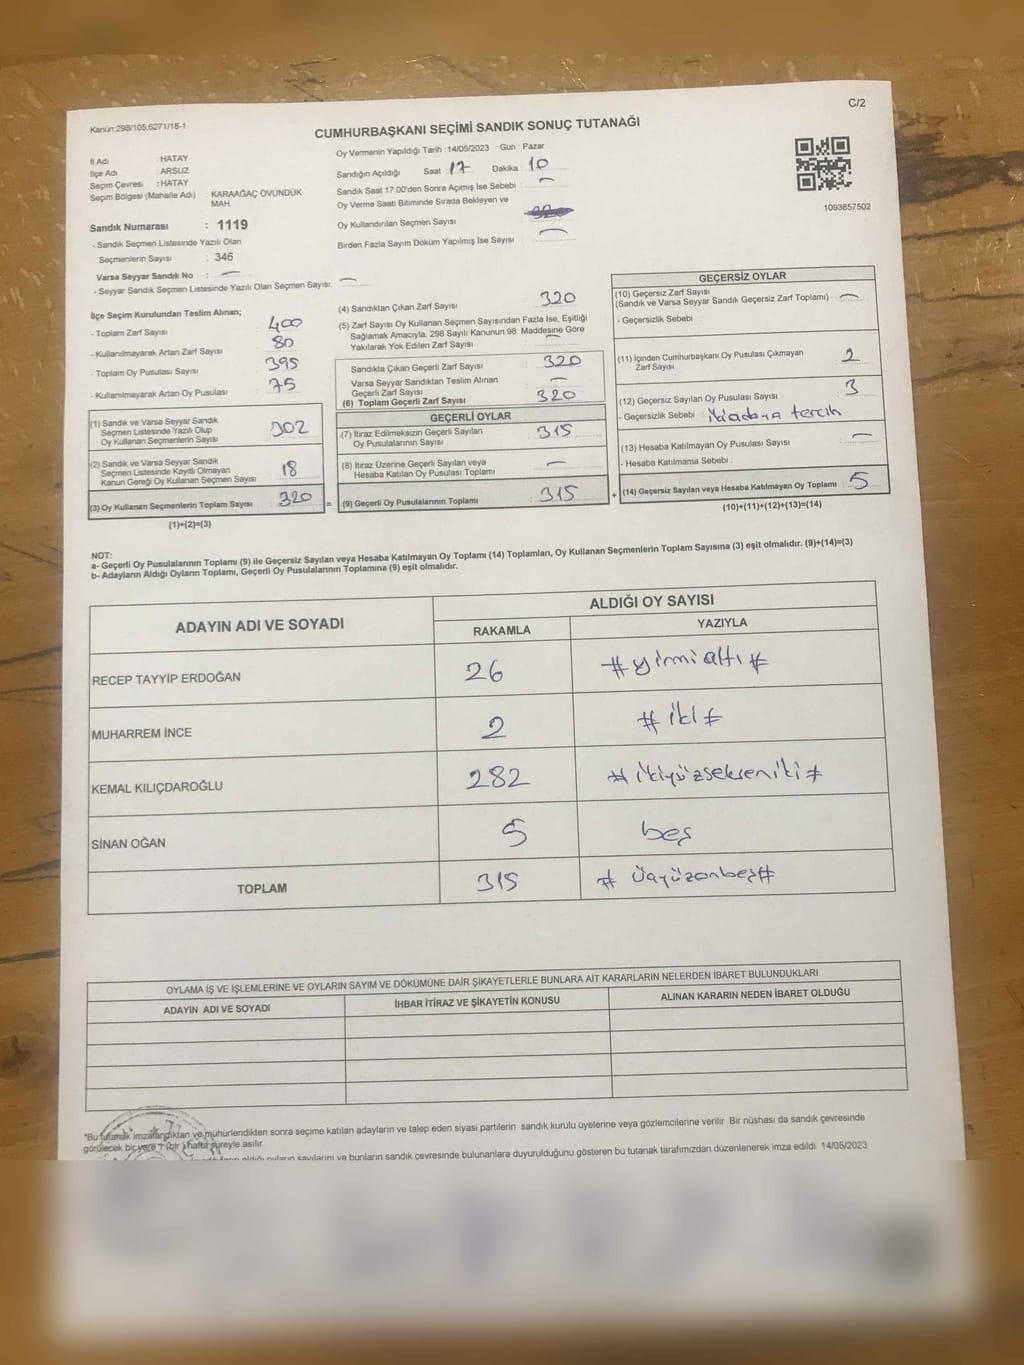 Kanun:298/105;6271/18-1
C/2
CUMHURBAŞKANI SEÇİMİ SANDIK SONUÇ TUTANAĞI
İl Adı : HATAY
İlçe Adı : ARSUZ
Seçim Çevresi : HATAY
Seçim Bölgesi (Mahalle Adı) : KARAAĞAÇ ÖVÜNDÜK
MAH.
Sandık Numarası : 1119
- Sandık Seçmen Listesinde Yazılı Olan
Seçmenlerin Sayısı : 346
Varsa Seyyar Sandık No : —
- Seyyar Sandık Seçmen Listesinde Yazılı Olan Seçmen Sayısı: —
Oy Vermenin Yapıldığı Tarih :14/05/2023 Gün : Pazar
Sandığın Açıldığı Saat : 17 Dakika : 10
Sandık Saat 17.00'den Sonra Açımış İse Sebebi : —
Oy Verme Saati Bitiminde Sırada Bekleyen ve
Oy Kullandırılan Seçmen Sayısı :
Birden Fazla Sayım Döküm Yapılmış İse Sayısı : —
1093857502
İlçe Seçim Kurulundan Teslim Alınan;
- Toplam Zarf Sayısı : 400
- Kullanılmayarak Artan Zarf Sayısı : 80
- Toplam Oy Pusulası Sayısı : 395
- Kullanılmayarak Artan Oy Pusulası : 75
(1) Sandık ve Varsa Seyyar Sandık
Seçmen Listesinde Yazılı Olup
Oy Kullanan Seçmenlerin Sayısı : 302
(2) Sandık ve Varsa Seyyar Sandık
Seçmen Listesinde Kayıtlı Olmayan
Kanun Gereği Oy Kullanan Seçmen Sayısı : 18
(3) Oy Kullanan Seçmenlerin Toplam Sayısı : 320
(1)+(2)=(3)
(4) Sandıktan Çıkan Zarf Sayısı : 320
(5) Zarf Sayısı Oy Kullanan Seçmen Sayısından Fazla İse, Eşitliği
Sağlamak Amacıyla, 298 Sayılı Kanunun 98. Maddesine Göre
Yakılarak Yok Edilen Zarf Sayısı : —
Sandıkta Çıkan Geçerli Zarf Sayısı : 320
Varsa Seyyar Sandıktan Teslim Alınan
Geçerli Zarf Sayısı : —
(6) Toplam Geçerli Zarf Sayısı : 320
GEÇERLİ OYLAR
(7) İtiraz Edilmeksizin Geçerli Sayılan
Oy Pusulalarının Sayısı : 315
(8) İtiraz Üzerine Geçerli Sayılan veya
Hesaba Katılan Oy Pusulası Toplamı : —
= (9) Geçerli Oy Pusulalarının Toplamı : 315
GEÇERSİZ OYLAR
(10) Geçersiz Zarf Sayısı
(Sandık ve Varsa Seyyar Sandık Geçersiz Zarf Toplamı) : —
- Geçersizlik Sebebi :
(11) İçinden Cumhurbaşkanı Oy Pusulası Çıkmayan
Zarf Sayısı : 2
(12) Geçersiz Sayılan Oy Pusulası Sayısı : 3
- Geçersizlik Sebebi : iki adaya tercih
(13) Hesaba Katılmayan Oy Pusulası Sayısı : —
- Hesaba Katılmama Sebebi :
+ (14) Geçersiz Sayılan veya Hesaba Katılmayan Oy Toplamı : 5
(10)+(11)+(12)+(13)=(14)
NOT:
a- Geçerli Oy Pusulalarının Toplamı (9) ile Geçersiz Sayılan veya Hesaba Katılmayan Oy Toplamı (14) Toplamları, Oy Kullanan Seçmenlerin Toplam Sayısına (3) eşit olmalıdır. (9)+(14)=(3)
b- Adayların Aldığı Oyların Toplamı, Geçerli Oy Pusulalarının Toplamına (9) eşit olmalıdır.
ADAYIN ADI VE SOYADI
ALDIĞI OY SAYISI
RAKAMLA YAZIYLA
RECEP TAYYİP ERDOĞAN 26 #yirmialtı#
MUHARREM İNCE 2 #iki#
KEMAL KILIÇDAROĞLU 282 #ikiyüzsekseniki#
SİNAN OĞAN 5 beş
TOPLAM 315 # üçyüzonbeş#
OYLAMA İŞ VE İŞLEMLERİNE VE OYLARIN SAYIM VE DÖKÜMÜNE DAİR ŞİKAYETLERLE BUNLARA AİT KARARLARIN NELERDEN İBARET BULUNDUKLARI
ADAYIN ADI VE SOYADI İHBAR İTİRAZ VE ŞİKAYETİN KONUSU ALINAN KARARIN NEDEN İBARET OLDUĞU
*Bu tutanak imzalandıktan ve mühürlendikten sonra seçime katılan adayların ve talep eden siyasi partilerin sandık kurulu üyelerine veya gözlemcilerine verilir. Bir nüshası da sandık çevresinde
görülecek bir yere 1 (bir ) hafta süreyle asılır.
aldığı oyların sayılarını ve bunların sandık çevresinde bulunanlara duyurulduğunu gösteren bu tutanak tarafımızdan düzenlenerek imza edildi. 14/05/2023